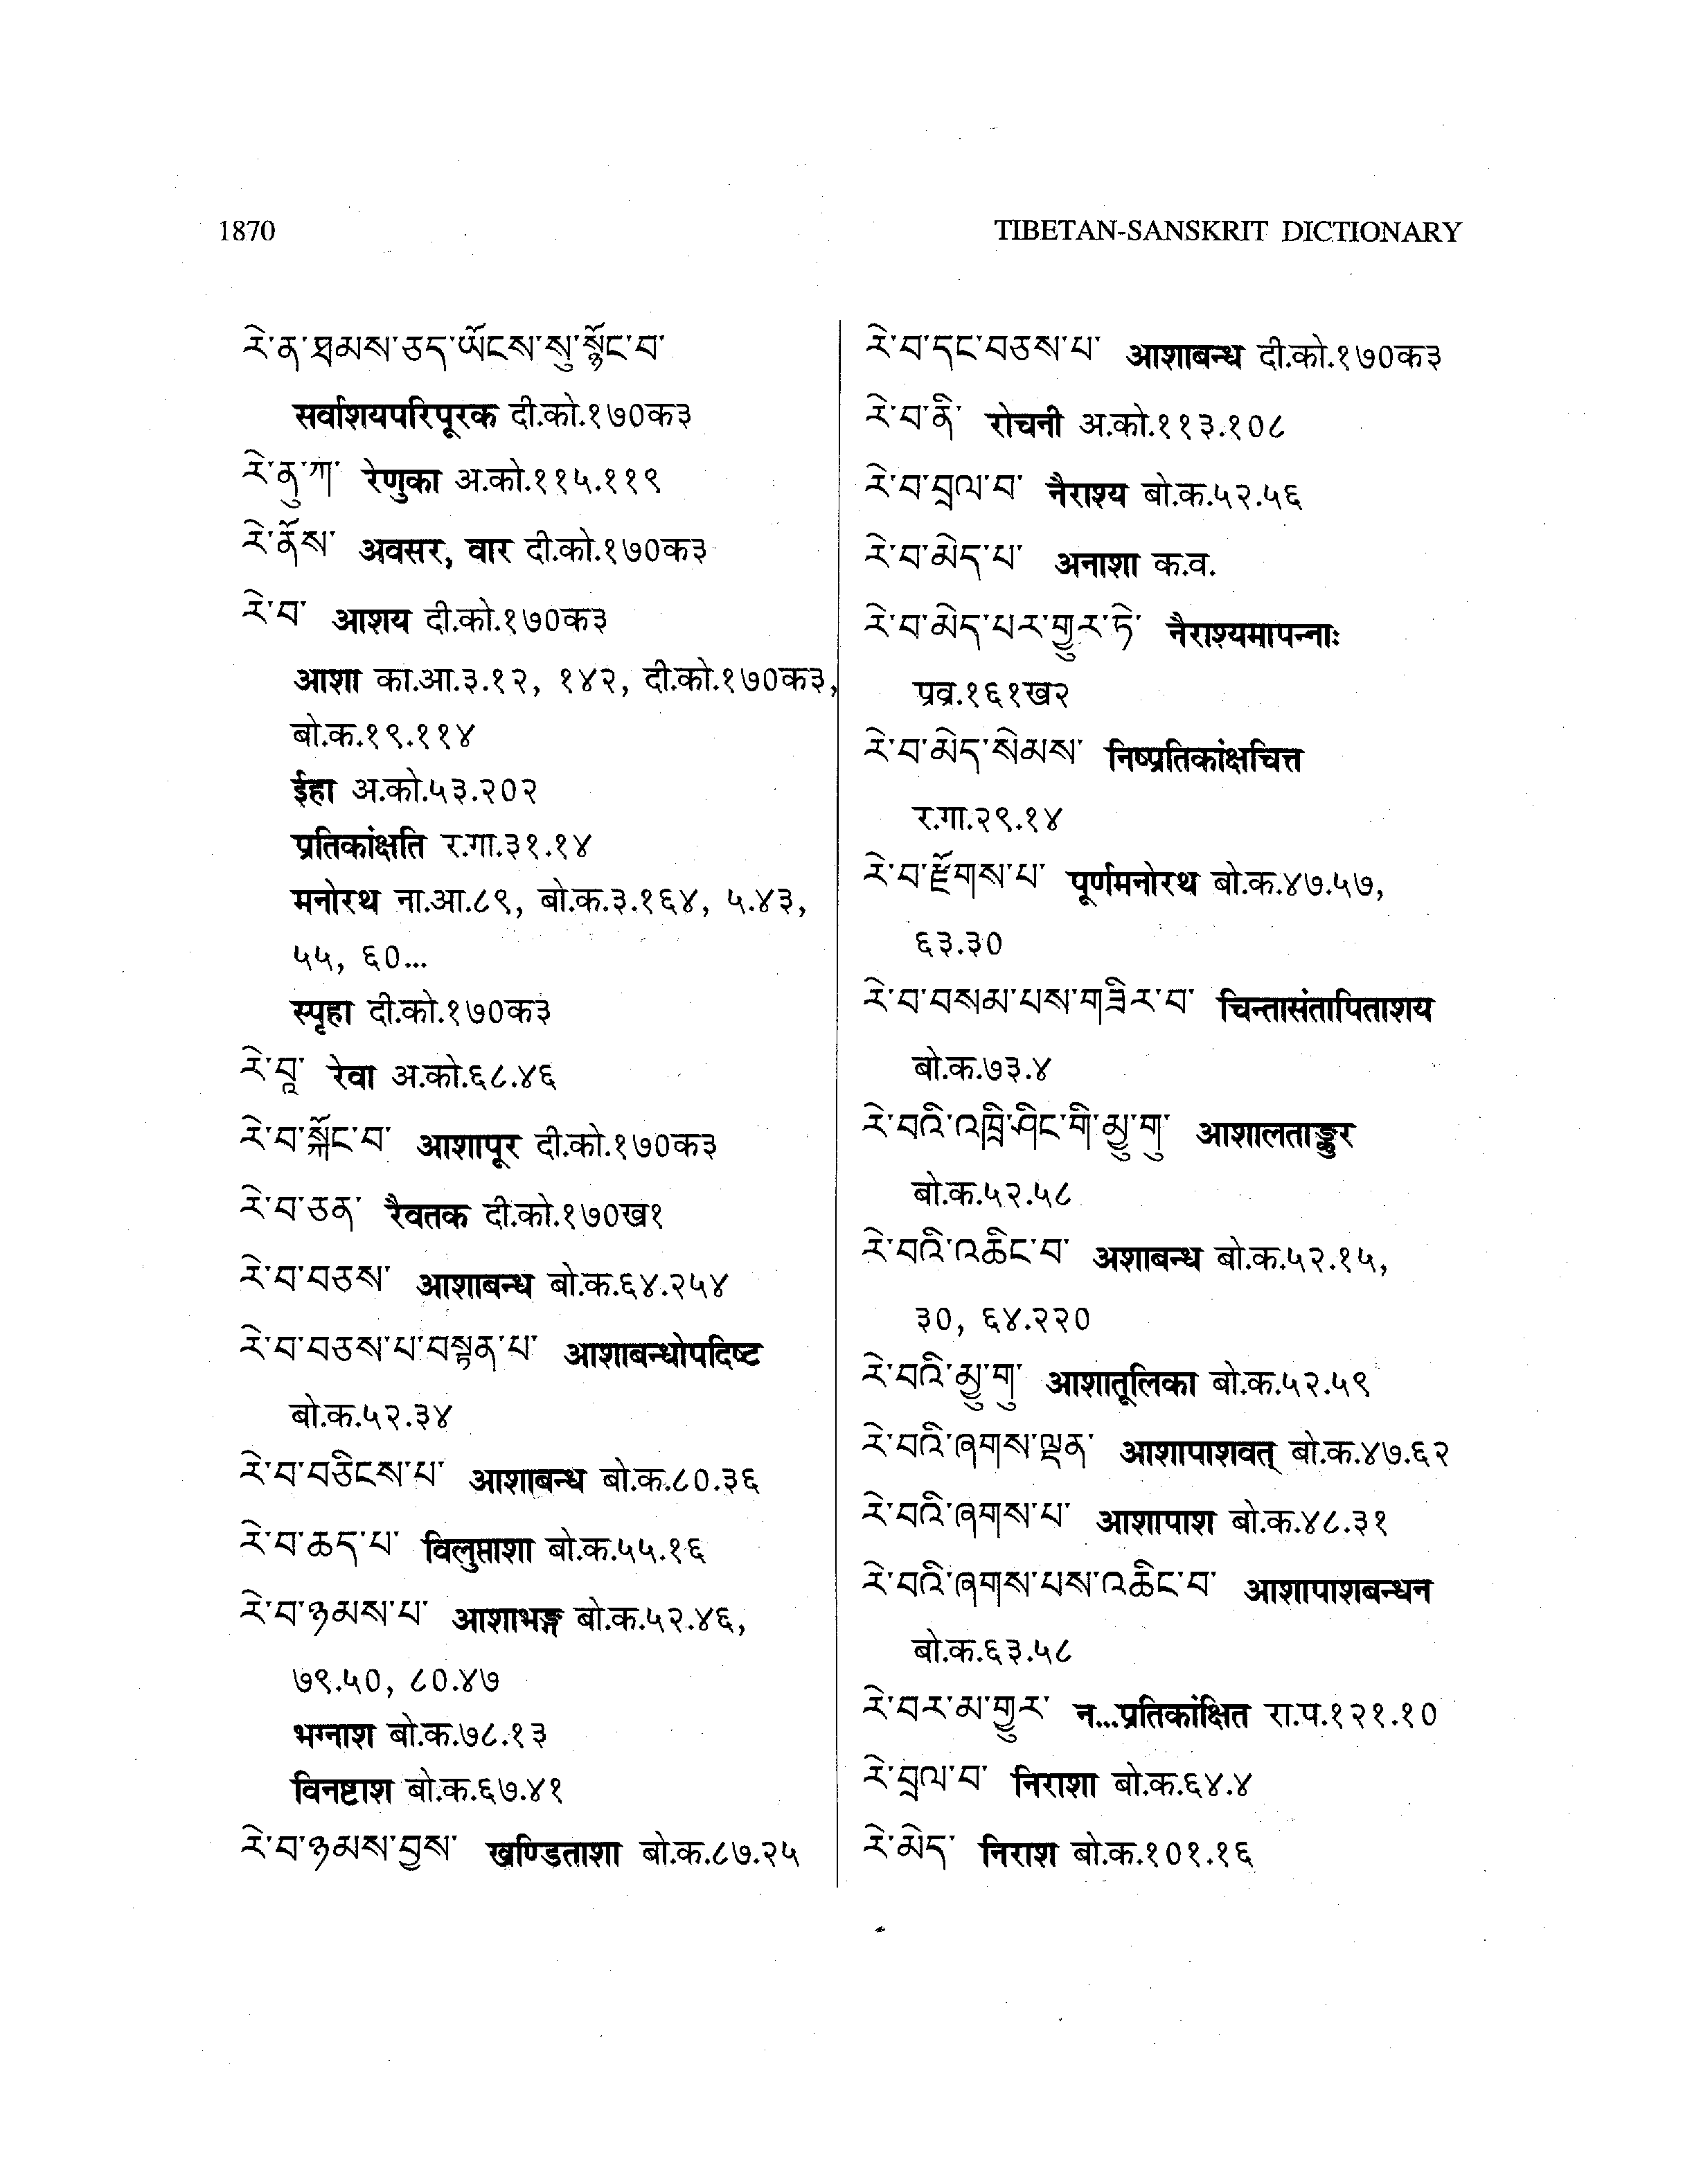 1870
TIBETAN-SANSKRIT DICTIONARY
རེ་ན་ཐམས་ཅད་ཡོངས་སུ་སྙོང་བ་
सर्वाशयपरिपूरक दी.को.१७०क३
རེ་ནུ་ཀ་ रेणुका अ.को.११५.११९
རེ་ནོས་ अवसर, वार दी.को.१७०क३
རེ་བ་ आशय दी.को.१७०क३
आशा का.आ.३.१२, १४२, दी.को.१७०क३,
बो.क.१९.११४
ईहा अ.को.५३.२०२
प्रतिकांक्षति र.गा.३१.१४
मनोरथ ना.आ.८९, बो.क.३.१६४, ५.४३,
५५, ६०...
स्पृहा दी.को.१७०क३
रेवा अ.को.६८.४६
རེ་བ་སྐོང་བ་ आशापूर दी.को.१७०क३
རེ་བ་ཅན་ रैवतक दी.को.१७०ख१
རེ་བ་བཅས་ आशाबन्ध बो.क.६४.२५४
རེ་བ་བཅས་པ་བསྟན་པ་ आशाबन्धोपदिष्ट
बो.क.५२.३४
རེ་བ་བཅིངས་པ་ आशाबन्ध बो.क.८०.३६
རེ་བ་ཆད་པ་ विलुप्ताशा बो.क.५५.१६
རེ་བ་ཉམས་པ་ आशाभङ्ग बो.क.५२.४६,
७९.५०, ८०.४७
भग्नाश बो.क.७८.१३
विनष्टाश बो.क.६७.४१
རེ་བ་ཉམས་བྱས་ खण्डिताशा बो.क.८७.२५
རེ་བ་དང་བཅས་པ་ आशाबन्ध दी.को.१७०क३
རེ་བ་ནི་ रोचनी अ.को.११३.१०८
རེ་བ་བྲལ་བ་ नैराश्य बो.क.५२.५६
རེ་བ་མེད་པ་ अनाशा क.व.
རེ་བ་མེད་པར་གྱུར་ཏེ་ नैराश्यमापन्नाः
प्रव्र.१६१ख२
རེ་བ་མེད་སེམས་ निष्प्रतिकांक्षचित्त
र.गा.२९.१४
རེ་བ་རྫོགས་པ་ पूर्णमनोरथ बो.क.४७.५७,
६३.३०
རེ་བ་བསམ་པས་གཟིར་བ་ चिन्तासंतापिताशय
बो.क.७३.४
རེ་བའི་འཁྲི་ཤིང་གི་མྱུ་གུ་ आशालताङ्कुर
बो.क.५२.५८
རེ་བའི་འཆིང་བ་ अशाबन्ध बो.क.५२.१५,
३०, ६४.२२०
རེ་བའི་མྱུ་གུ་ आशातूलिका बो.क.५२.५९
རེ་བའི་ཞགས་ལྡན་ आशापाशवत् बो.क.४७.६२
རེ་བའི་ཞགས་པ་ आशापाश बो.क.४८.३१
རེ་བའི་ཞགས་པས་འཆིང་བ་ आशापाशबन्धन
बो.क.६३.५८
རེ་བར་མ་གྱུར་ न...प्रतिकांक्षित रा.प.१२१.१०
རེ་བྲལ་བ་ निराशा बो.क.६४.४
རེ་མེད་ निराश बो.क.१०१.१६